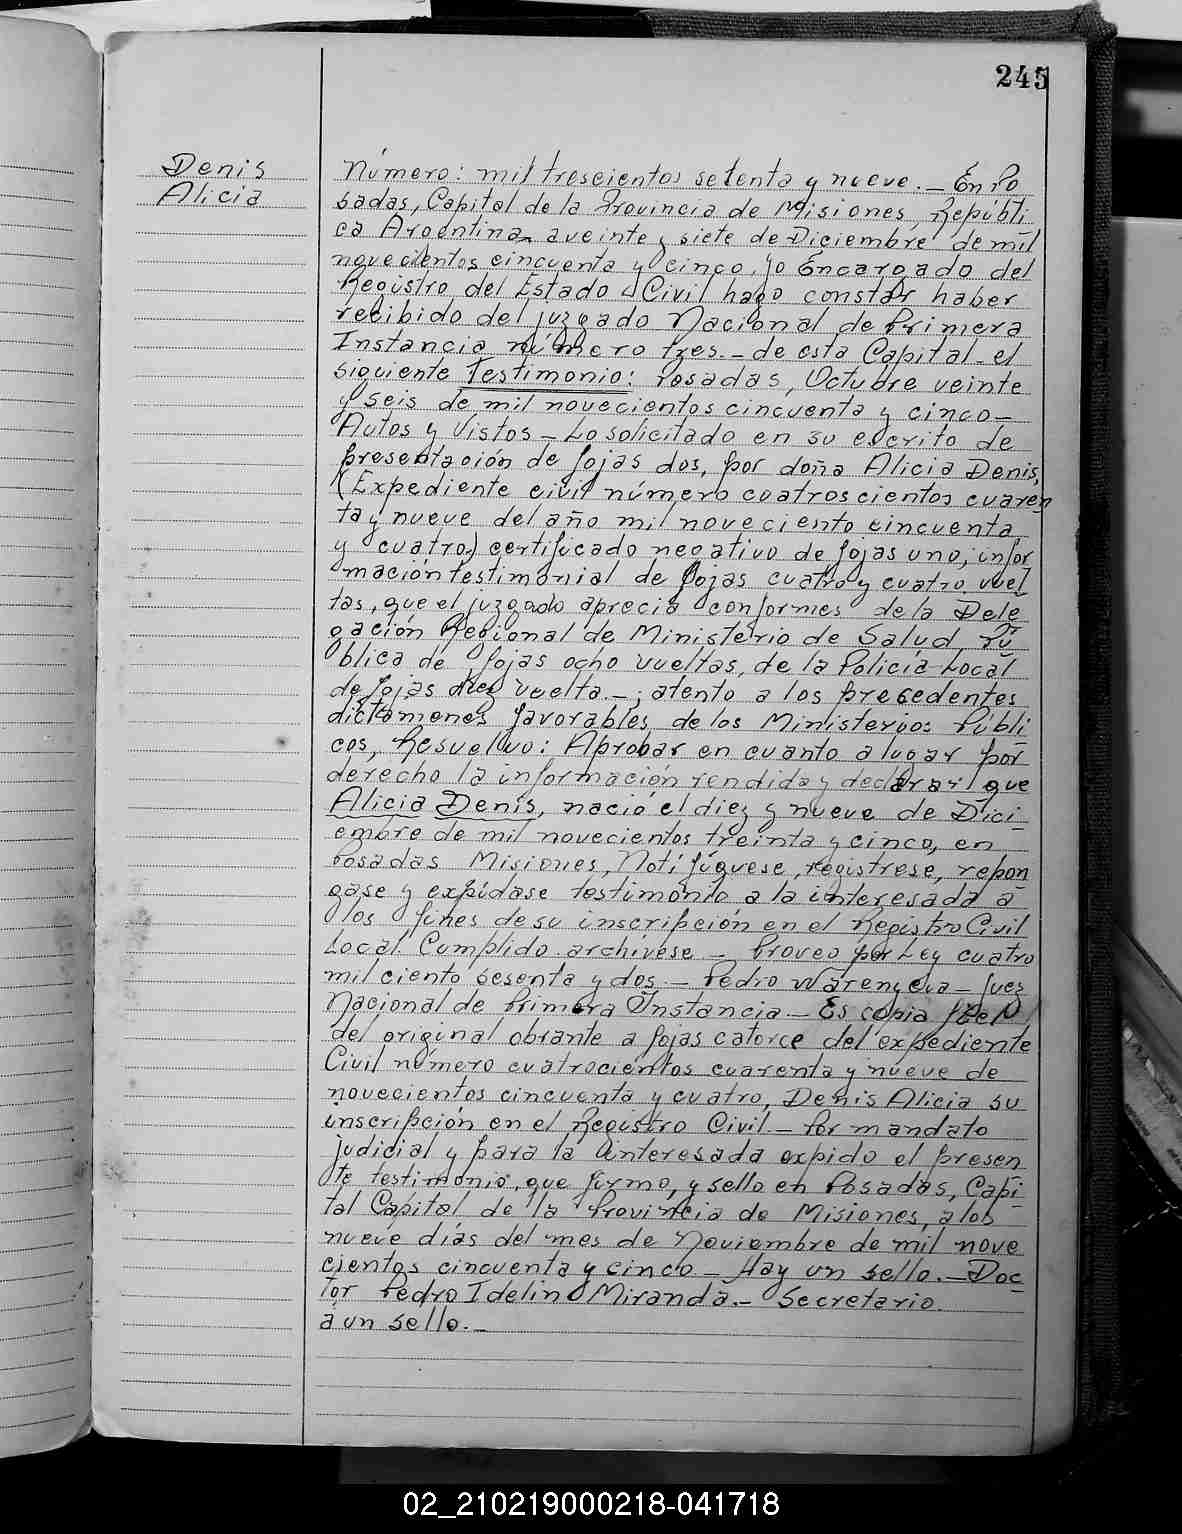 245
Denis
Alicia
Número: mil trescientos setenta y nueve. _ En Po
sadas, Capital de la Provincia de Misiones, Repúbli
ca Argentina, a veinte y siete de Diciembre de mil
novecientos cincuenta y cinco, yo Encargado del
Registro del Estado Civil hago constar haber
recibido del juzgado Nacional de Primera
Instancia número tres. _ de esta Capital _ el
siguiente Testimonio: Posadas, Octubre veinte
y seis de mil novecientos cincuenta y cinco _
Autos y Vistos _ Lo solicitado en su escrito de
presentación de fojas dos, por doña Alicia Denis,
(Expediente civil número cuatroscientos cuaren
ta y nueve del año mil noveciento cincuenta
y cuatro) certificado negativo de fojas uno, infor
mación testimonial de fojas cuatro y cuatro vuel
tas, que el juzgado aprecia conformes de la Dele
gación Regional de Ministerio de Salud Pú
blica de fojas ocho vueltas, de la Policía Local
de fojas diez vuelta _; atento a los precedentes
dictamenes favorables de los Ministerios Públi
cos, Resuelvo: Aprobar en cuanto a lugar por
derecho la información rendida y declarar que
Alicia Denis, nació el diez y nueve de Dici
embre de mil novecientos treinta y cinco, en
Posadas Misiones, Notifíquese, registrese, repon
gase y expídase testimonio a la interesada a
los fines de su inscripción en el Registro Civil
Local. Cumplido archívese _ Proveo por Ley cuatro
mil ciento sesenta y dos _ Pedro Warenycia _ Juez
Nacional de Primera Instancia _ Es copia fiel
del original obrante a fojas catorce del expediente
Civil número cuatrocientos cuarenta y nueve de
novecientos cincuenta y cuatro, Denis Alicia su
inscripción en el Registro Civil _ Por mandato
judicial y para la interesada expido el presen
te testimonio, que firmo, y sello en Posadas, Capi
tal Capital de la Provincia de Misiones, a los
nueve días del mes de Noviembre de mil nove
cientos cincuenta y cinco _ Hay un sello. _ Doc
tor Pedro Idelino Miranda. _ Secretario.
a un sello. _
02_210219000218-041718